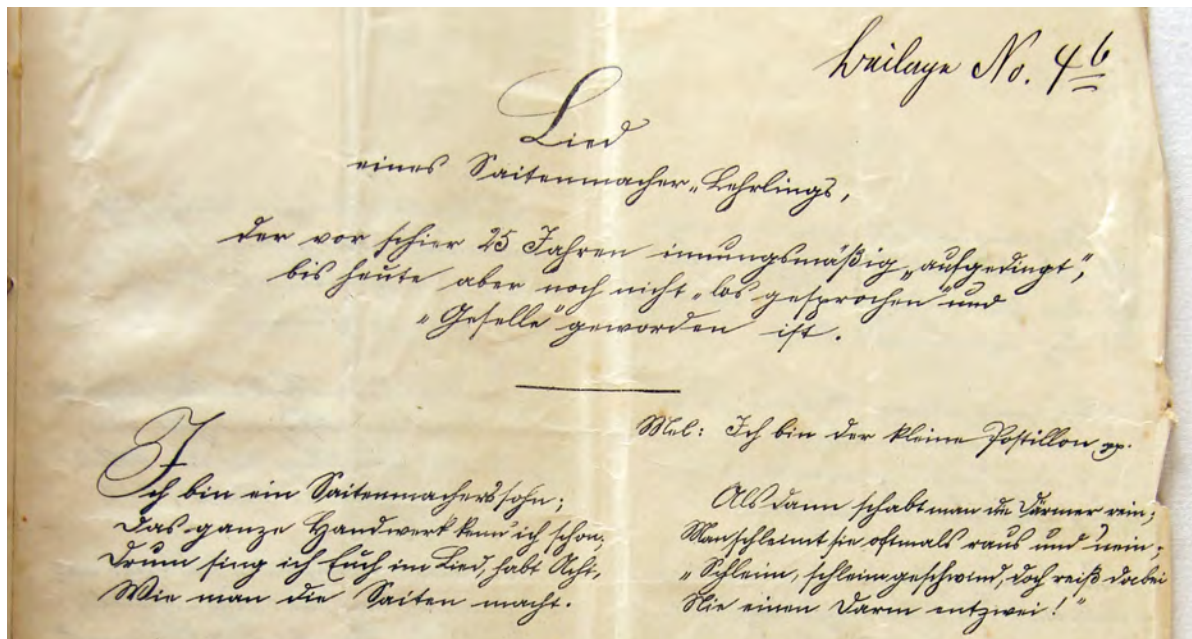 Beilage No. 4b
Lied
eines Saitenmacher-Lehrlings,
der vor schier 25 Jahren innungsmäßig „aufgedingt“,
bis heute aber noch nicht „los gesprochen“ und
„Geselle“ geworden ist.
Mel: Ich bin der kleine Postillon pp.
Ich bin ein Saitenmacherssohn;
Das ganze Handwerk kenn' ich schon;
Drum sing ich Euch im Lied, habt Acht,
Wie man die Saiten macht.
Als dann schabt man die Därmer rein;
Man schleimt sie oftmals raus und nein;
„Schleim, schleim geschwind, doch reiß dabei
Nie einen Darm entzwei!“